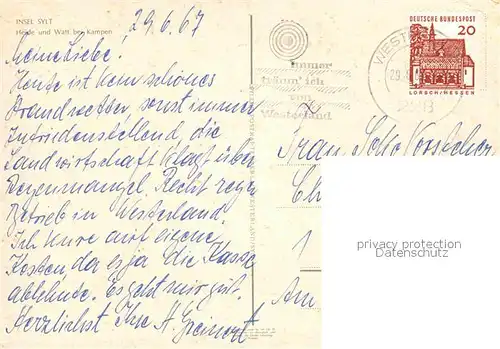 INSEL SYLT
Heide und Watt bei Kampen
29.6.67
Meine Liebe!
Heute ist kein schönes
Strandwetter sonst immer
zufriedenstellend, die
Landwirtschaft klagt über
Regenmangel. Recht reger
Betrieb in Westerland.
Ich kure auf eigene
Kosten, da es ja die Kasse
ablehnte. Es geht mir gut.
Herzlichst Ihre A.
immer
träum' ich
von
Westerland
WEST
29.
DEUTSCHE BUNDESPOST
20
LORSCH/HESSEN
Frau
1
Am
privacy protection
Datenschutz